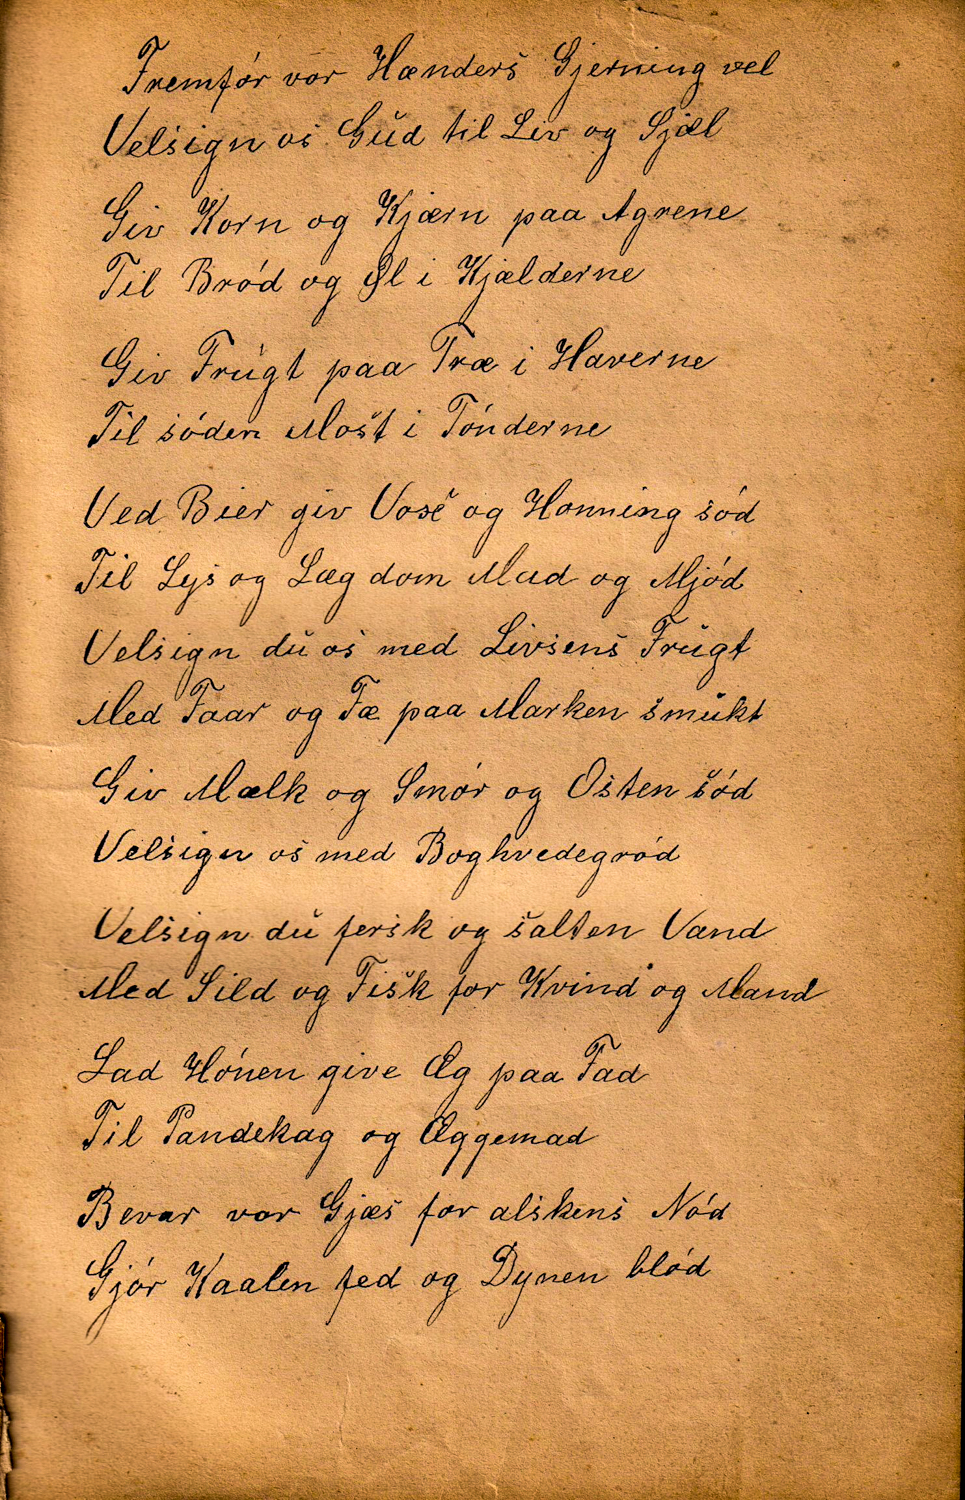 Fremfór vor Hænders Gjerning vel
Velsign os Gŭd til Liv og Sjæl
Giv Korn og Kjærn paa Agrene
Til Bród og Øl i Kjælderne
Giv Frŭgt paa Træ i Haverne
Til sóden Most i Tónderne
Ved Bier giv Vosĕ og Honning sód
Til Lys og Lægdom Mad og Mjód
Velsign dŭ os med Livsens Frŭgt
Med Faar og Fæ paa Marken smŭkt
Giv Mælk og Smór og Osten sód
Velsign os med Boghvedegród
Velsign dŭ fersk og salten Vand
Med Sild og Fisk for Kvind og Mand
Lad Hónen give Æg paa Fad
Til Pandekag og Æggemad
Bevar vor Gjæs for alskens Nód
Gjór Kaalen fed og Dynen blód